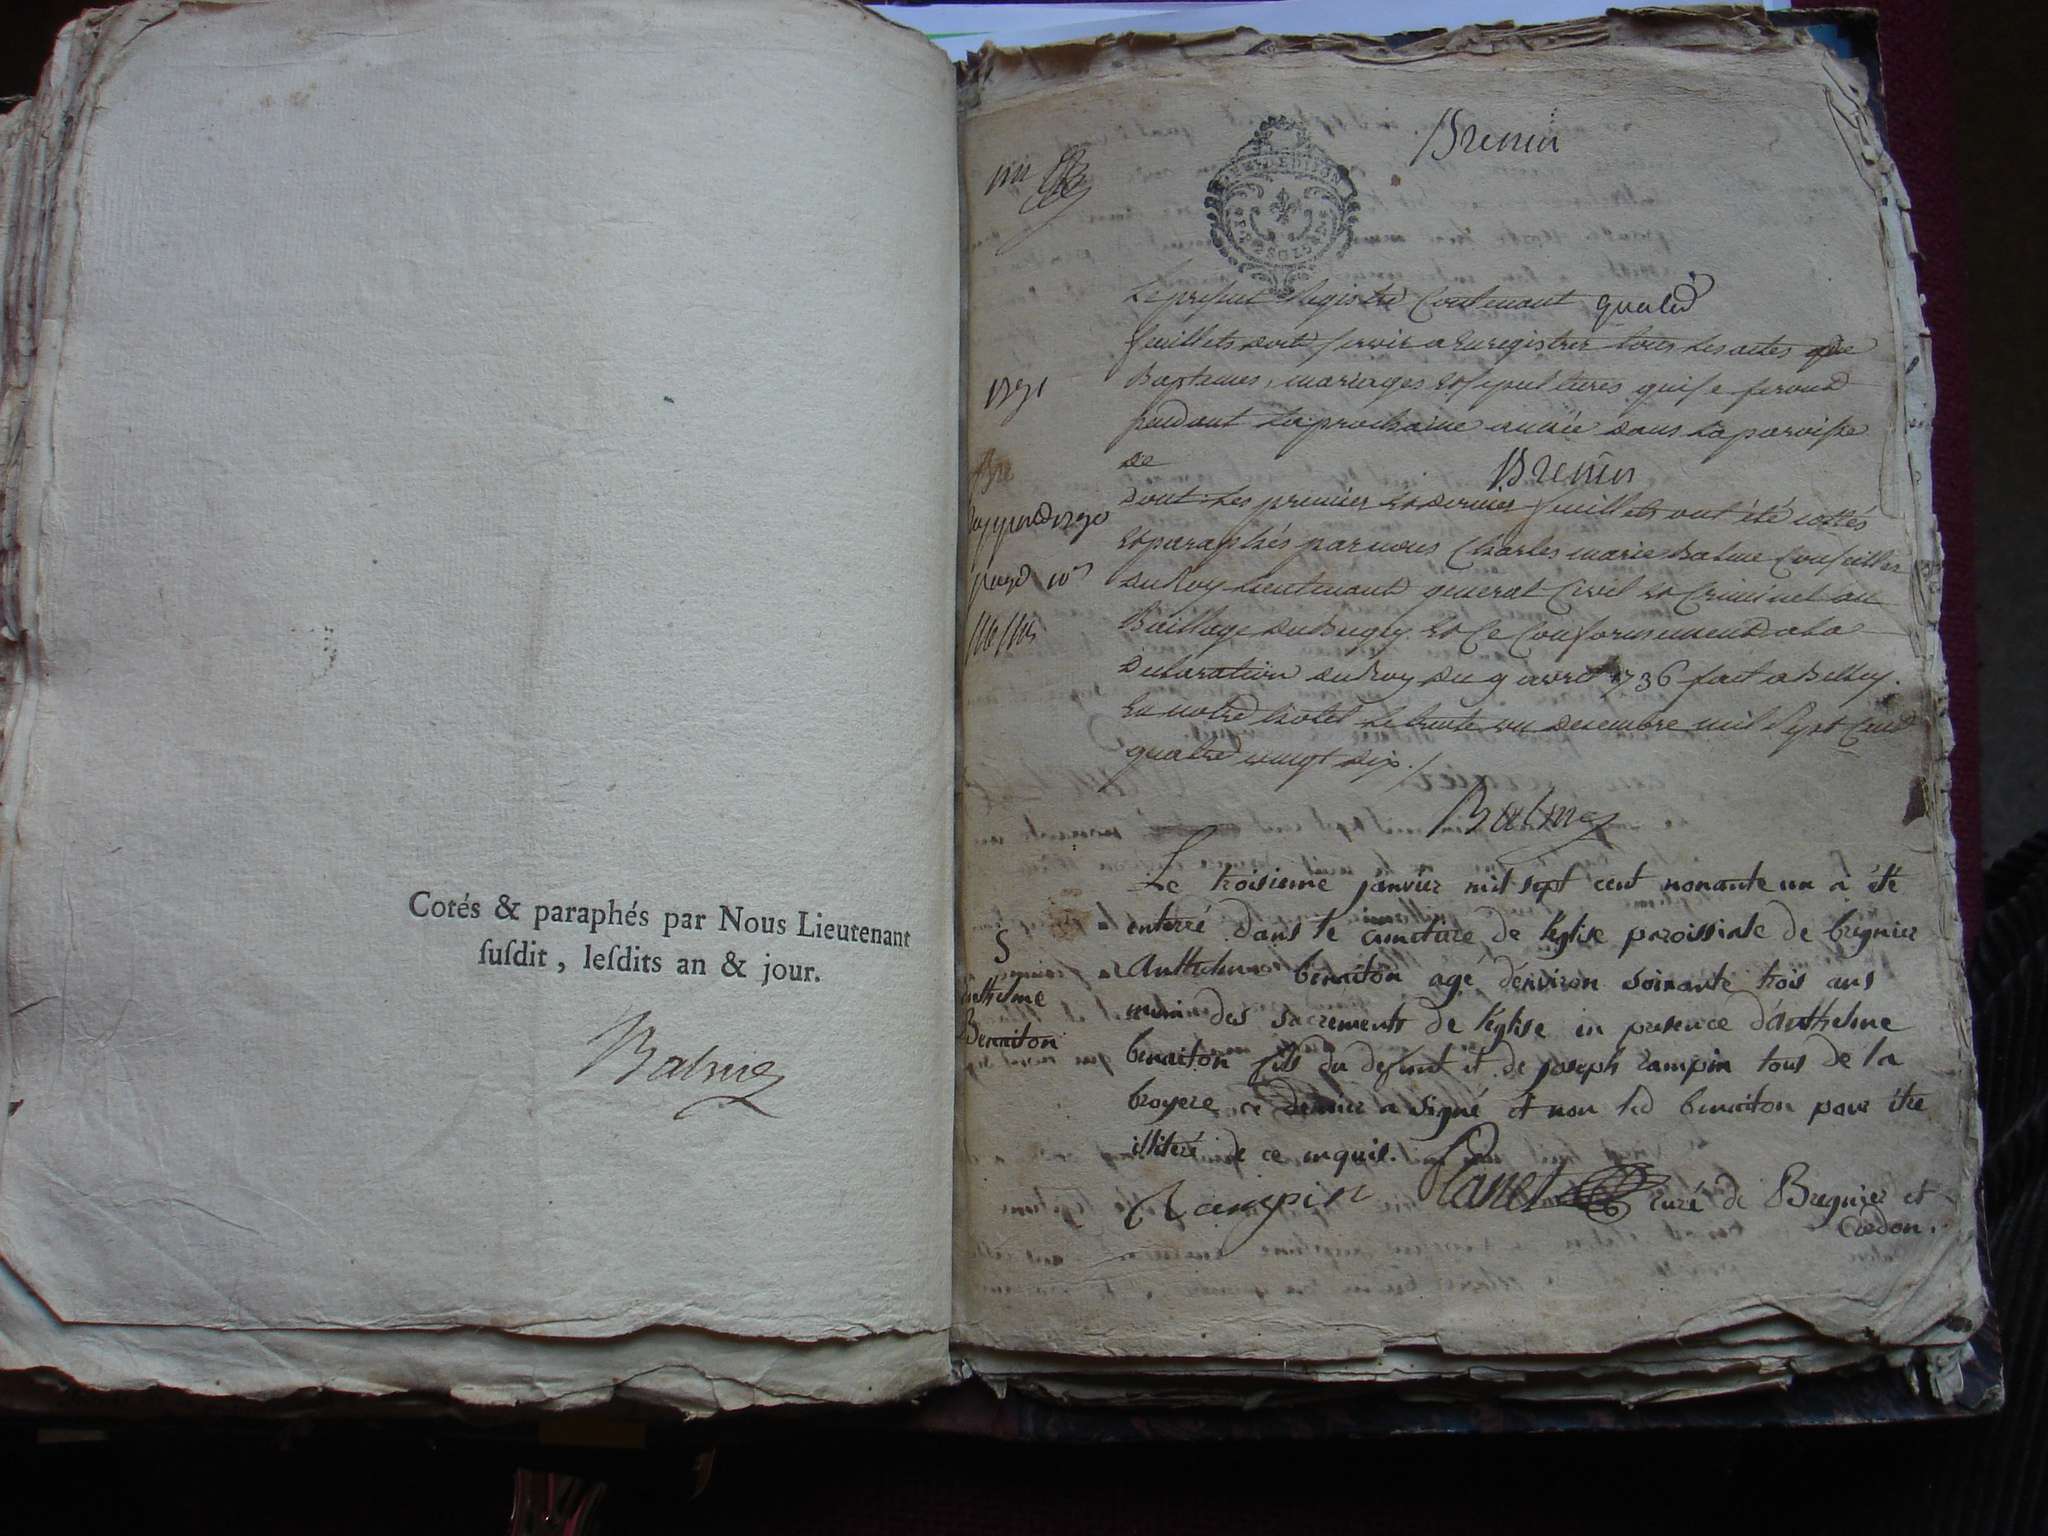 Cotés & paraphés par Nous Lieutenant
ſuſdit, leſdits an & jour.
Balme
Brenin
1791
Le présent Registre Contenant quatre
feuillets doit servir a Enregistrer tous les actes de
Baptemes, mariages et sepultures qui se feront
pendant la prochaine année dans la paroisse
de Brenin
dont les premier et dernier feuillets ont été cottés
et paraphés par nous Charles marie Balme Conseiller
du Roy Lieutenant general Civil et Criminel au
Bailliage du Bugey. et Ce Conformement a la
declaration du Roy du 9 avril 1736 fait a Belley.
En notre hotel le trente un decembre mil Sept Cent
quatre vingt dix./
Balme
S
Anthelme
Benaiton
Le troisieme janvier mil sept cent nonante un a été
enterré dans le cimetiere de l'église paroissiale de bregnier
Anthelme benaiton agé d'environ soixante trois ans
muni des sacrements de l'église en presence d'anthelme
benaiton fils du defunt et de joseph rampin tous de la
broyere ce dernier a signé et non led benaiton pour être
illiteré de ce enquis.
Rampin Panet curé de Bregnier et
Cordon.